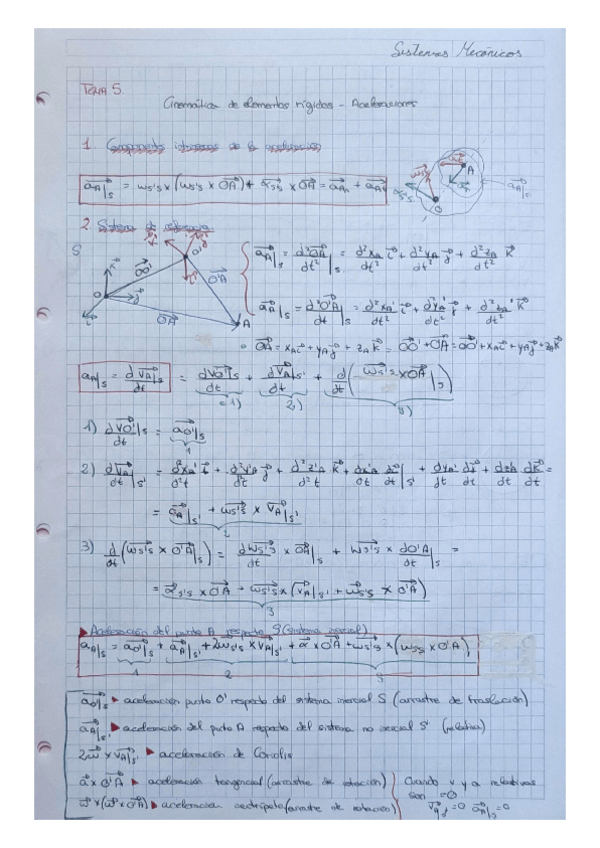 Sistemas Mecánicos
TEMA 5.
Cinemática de elementos rígidos - Aceleraciones
1. Componentes intrínsecas de la aceleración
aA|s = ws's × (ws's × OA) + αs's × OA = aAn + aAt
2. Sistema de referencia
aA|s = d²OA/dt² |s = d²xA/dt² i + d²yA/dt² j + d²zA/dt² k
aA|s' = d²O'A/dt |s = d²xA'/dt² i + d²yA'/dt² j + d²zA'/dt² k
OA = xA i + yA j + zA k = OO' + O'A = OO' + xA i + yA j + zA k
aA|s = d vA|s/dt = d vO'|s/dt + d vA|s'/dt + d/dt (ws's × O'A|s)
1) 2) 3)
1) d vO'/dt |s = aO'|s
2) d vA/dt |s' = d²xA'/d²t i + d²y'A/d²t j + d²z'A/d²t k + dx'A/dt di/dt |s' + dyA'/dt dj/dt + dzA/dt dk/dt =
= aA|s' + ws's × vA|s'
3) d/dt (ws's × O'A|s) = d ws's/dt × O'A|s + ws's × dO'A/dt |s =
= αs's × O'A + ws's × (vA|s' + ws's × O'A)
▶ Aceleración del punto A respecto S (sistema inercial)
aA|s = aO'|s + aA|s' + 2ws's × vA|s' + α × O'A + ws's × (ws's × O'A)
aO'|s ▶ aceleración punto O' respecto del sistema inercial S (arrastre de traslación)
aA|s' ▶ aceleración del punto A respecto del sistema no inercial S' (relativa)
2w × vA|s' ▶ aceleración de Coriolis
α × O'A ▶ aceleración tangencial (arrastre de rotación) Cuando v y a relativas
son = 0
w × (w × O'A) ▶ aceleración centrípeta (arrastre de rotación)